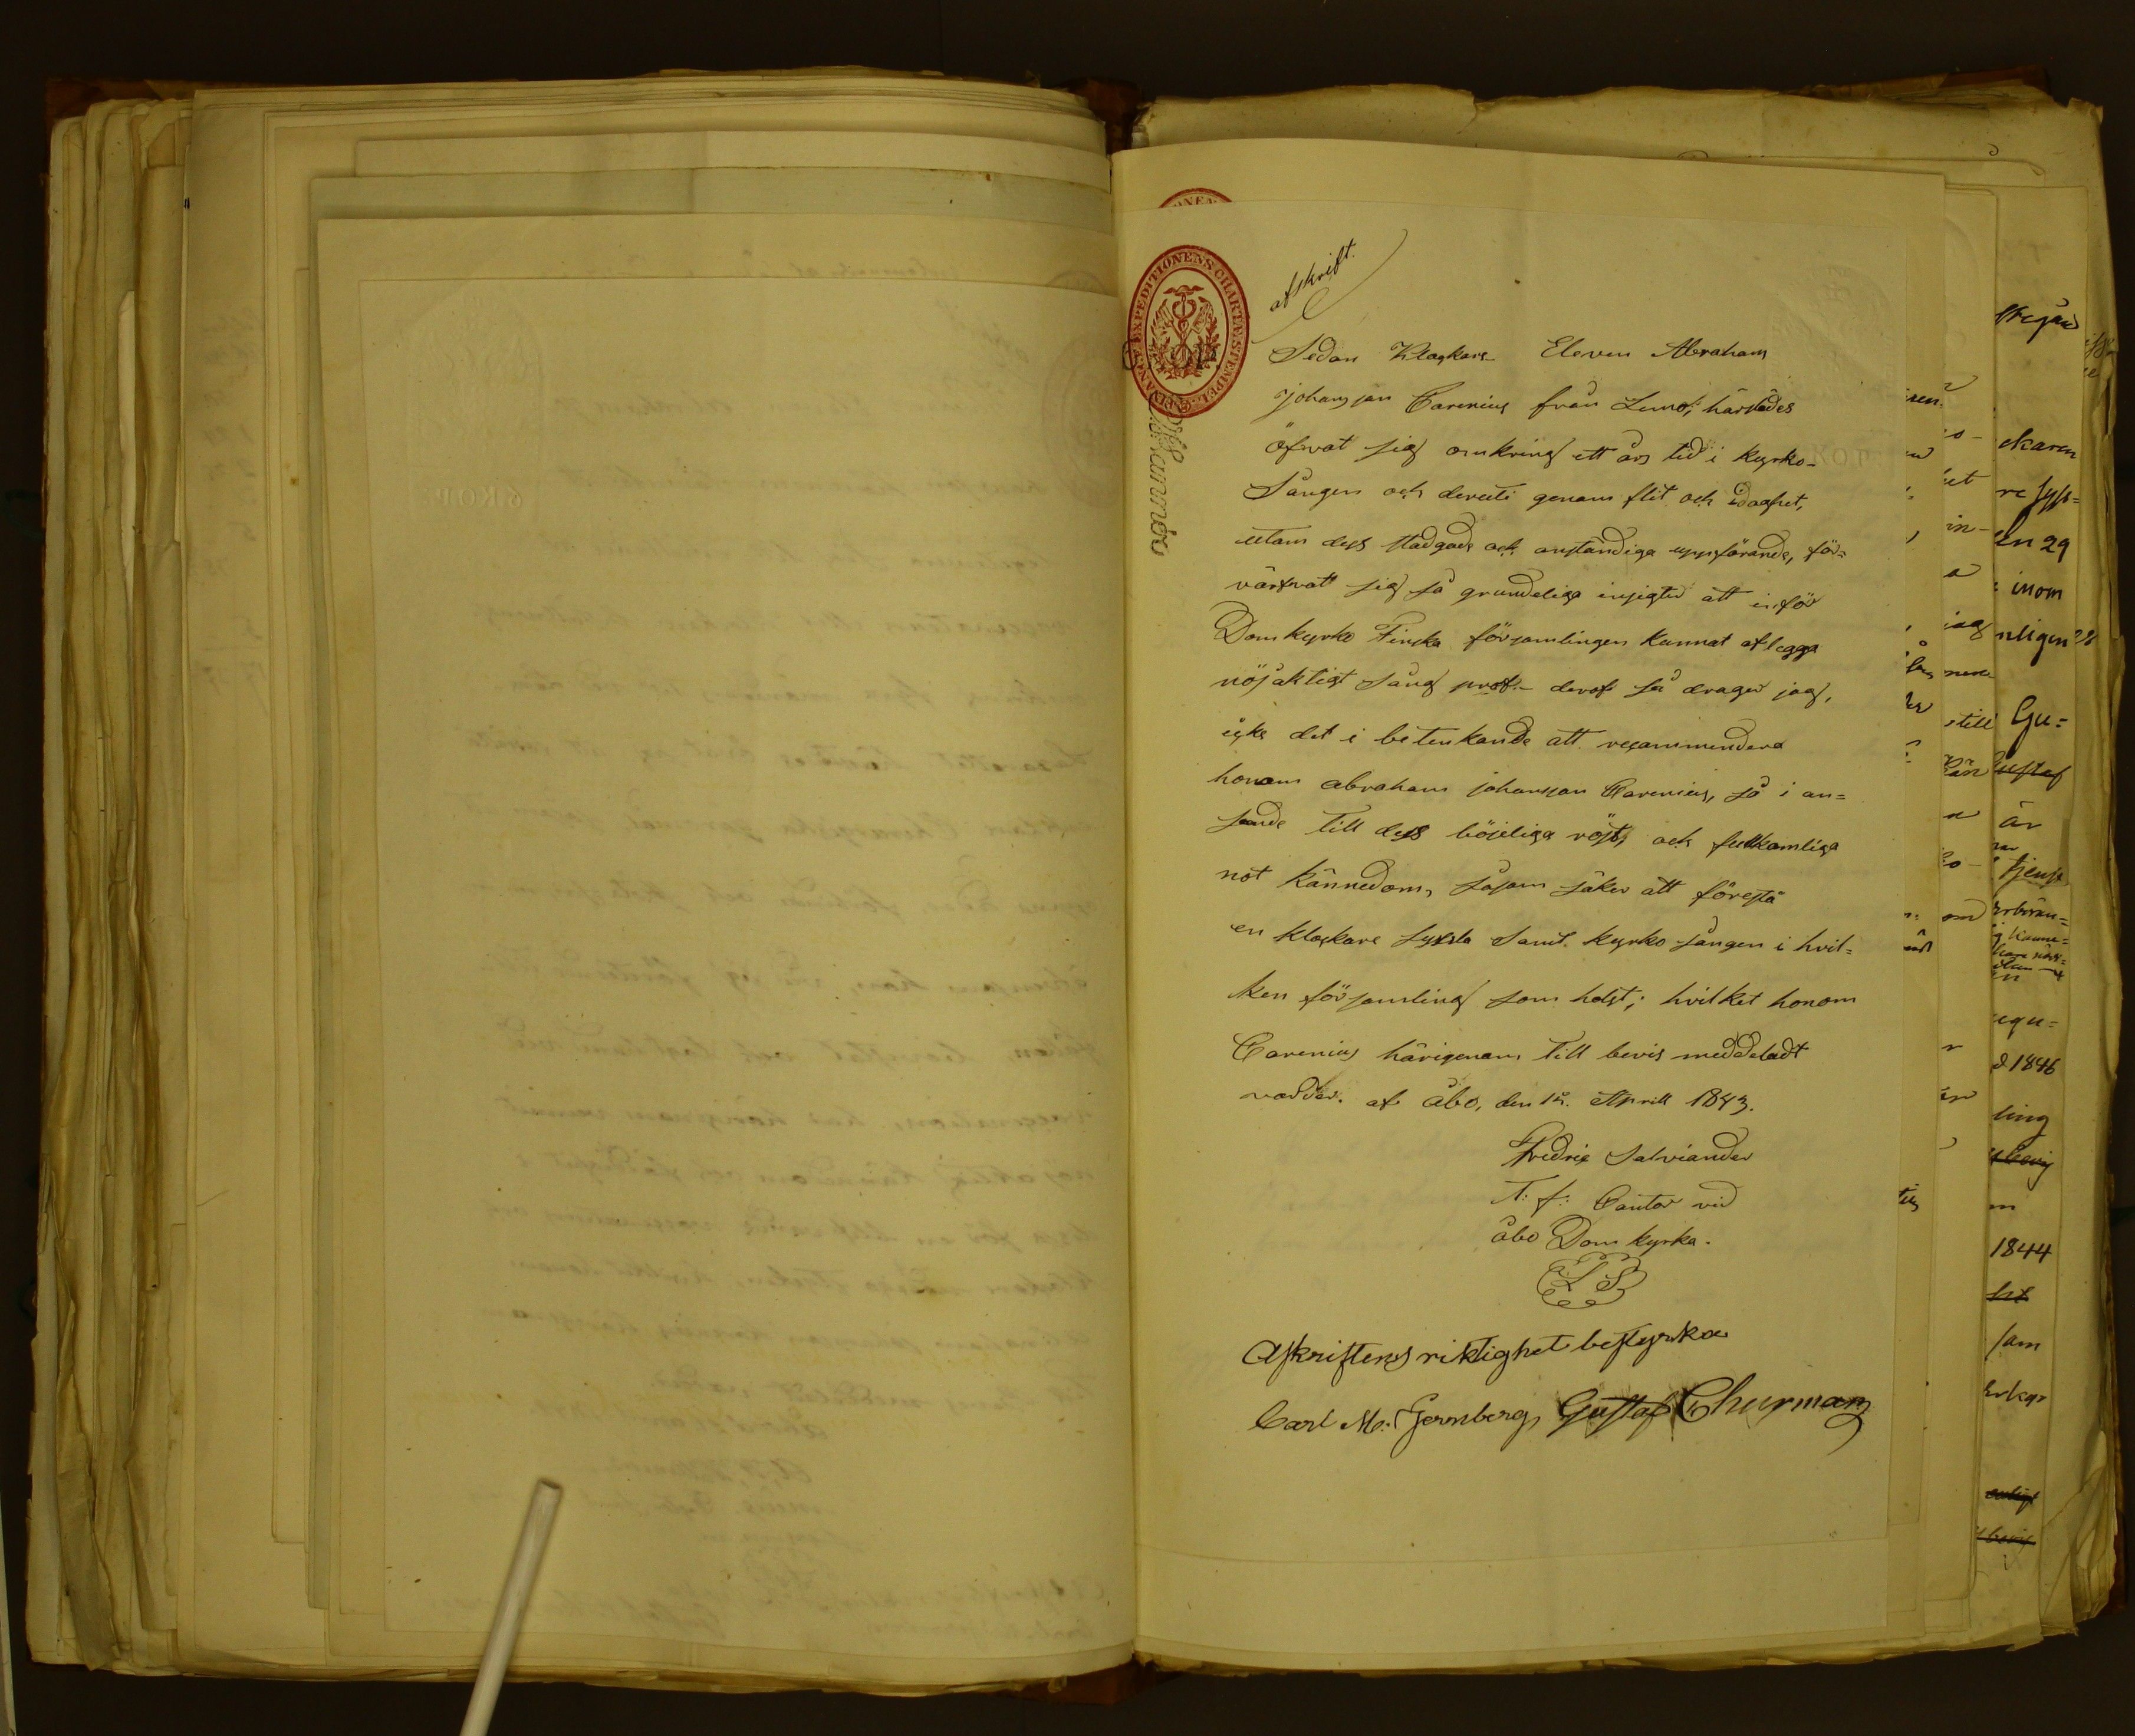 afskrift.
FINANCE EXPEDITIONENS CHARTÆ STEMPEL.
Sedan Klockare Eleven Abraham
Johansson Carenius från Lemo, härstädes
öfwat sig omkring ett års tid i kyrko-
sången och deruti genom flit och idoghet,
utom dess stadgade och anständiga uppförande, för=
värfwatt sig så grundeliga insigter att inför
Domkyrko Finska församlingen kunnat aflegga
nöjaktigt sång prof derof så drager jag,
icke det i betenkande att recommendera
honom Abraham Johansson Carenius, så i an=
seende till dess böjeliga röst, och fullkomliga
not kännedom, såsom säker att förestå
en klockare syssla samt kyrko sången i hvil=
ken församling som helst; hvilket honom
Carenius härigenom till bevis meddeladt
varder. af Åbo, den 12. Aprill 1843.
Fredric Salviander
T: f: Cantor vid
Åbo Domkyrka.
L S
Afskriftens riktighet bestyrka
Carl M: Jernberg, Gustaf Churman
6 KOP
ekaren
en 29
inom
nligen
Gu=
är
1846
ling
1844
sam